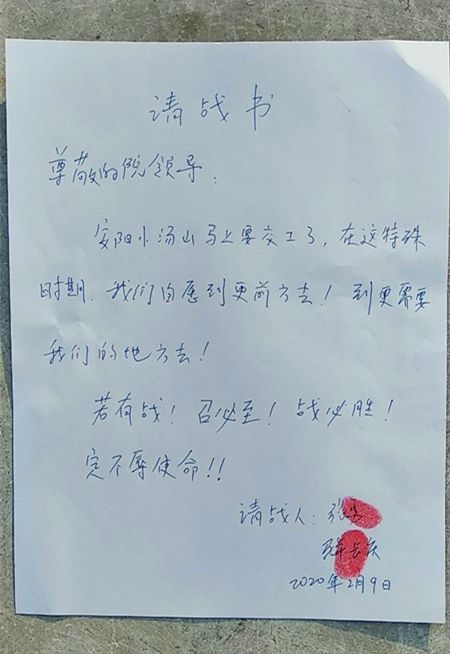 请战书
尊敬的院领导：
安阳小汤山马上要交工了，在这特殊
时期，我们自愿到更前方去！到更需要
我们的地方去！
若有战！召必至！战必胜！
定不辱使命！！
请战人：张
2020年2月9日